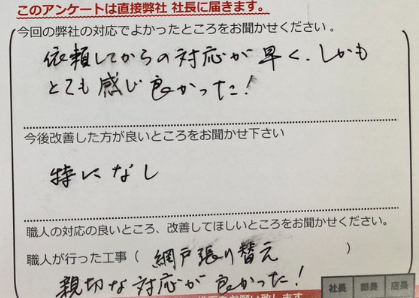 このアンケートは直接弊社 社長に届きます。
今回の弊社の対応でよかったところをお聞かせください。
依頼してからの対応が早く、しかも
とても感じ良かった!
今後改善した方が良いところをお聞かせ下さい
特になし
職人の対応の良いところ、改善してほしいところをお聞かせください。
職人が行った工事( 網戸張り替え )
親切な対応が良かった!
社長 部長 店長
お願い致します